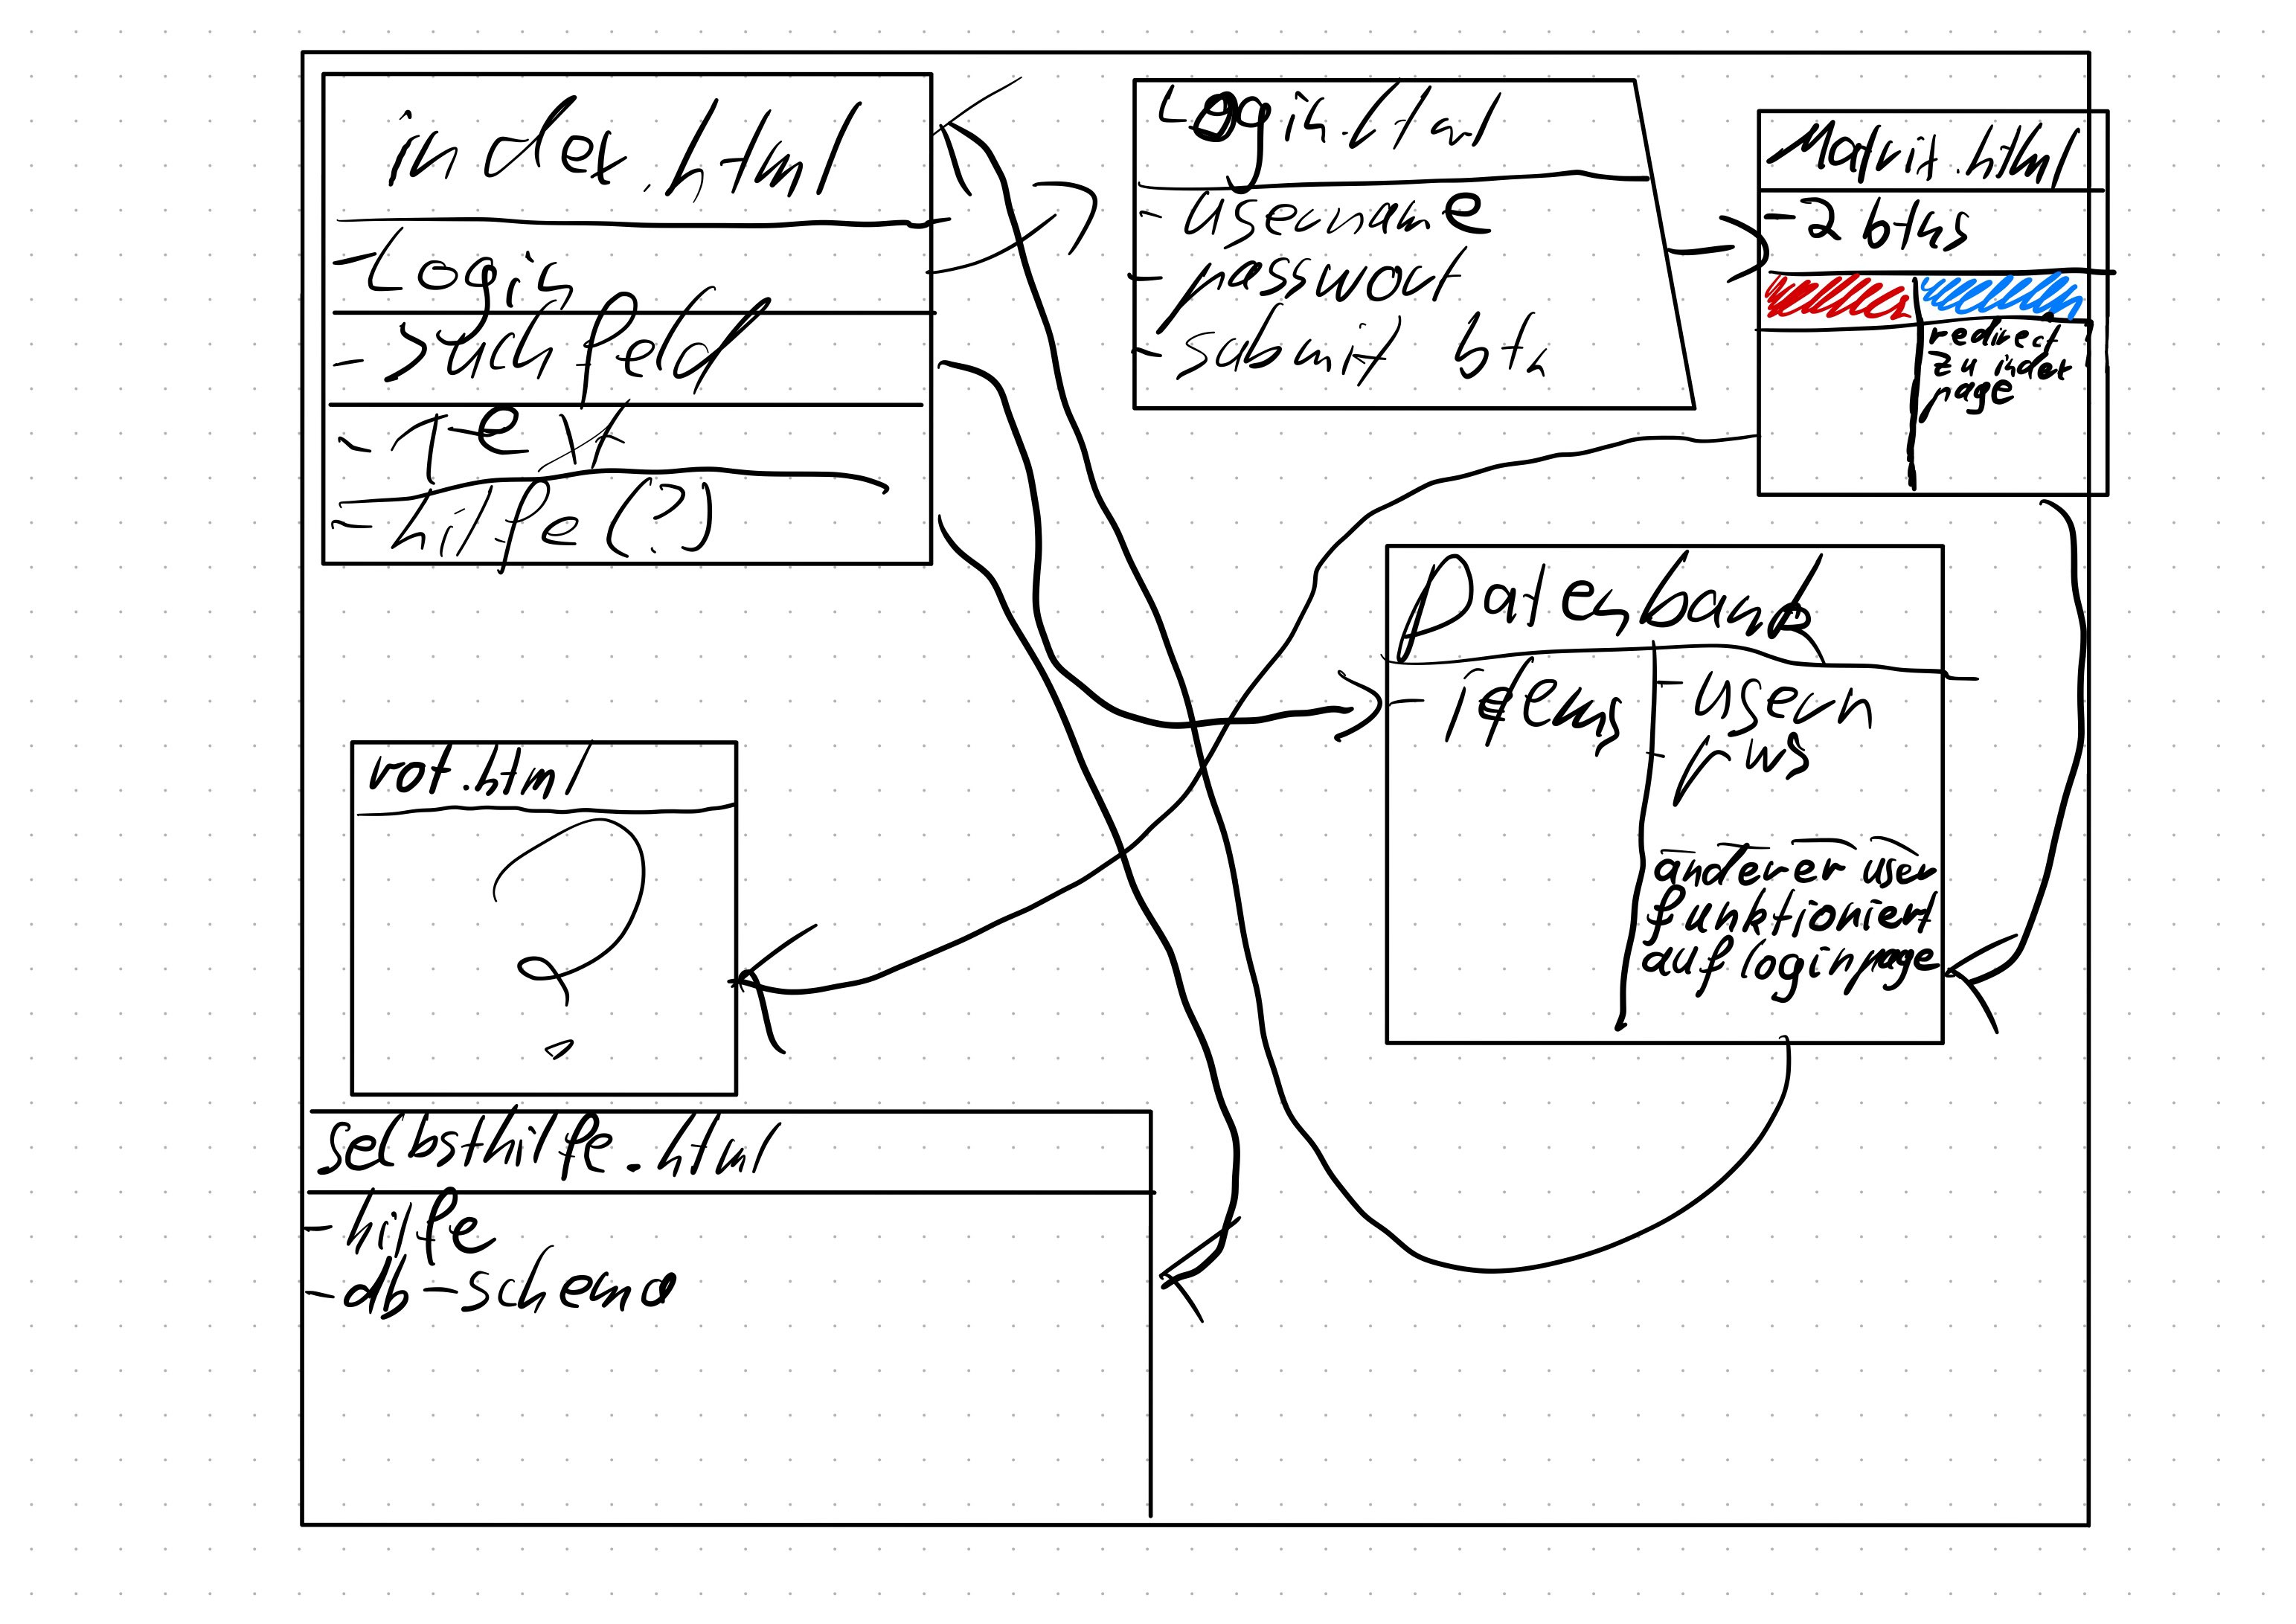 index.html
-Login
- suchfeld
- Text
- hilfe(?)
Login.html
- username
- passwort
- submit btn
Matrix.html
-2 btns
redirect
zu index
page
Datenbank
- items
- usern
- pws
anderer user
funktioniert
auf loginpage
rot.html
?
selbsthilfe.html
-hilfe
-db-schema